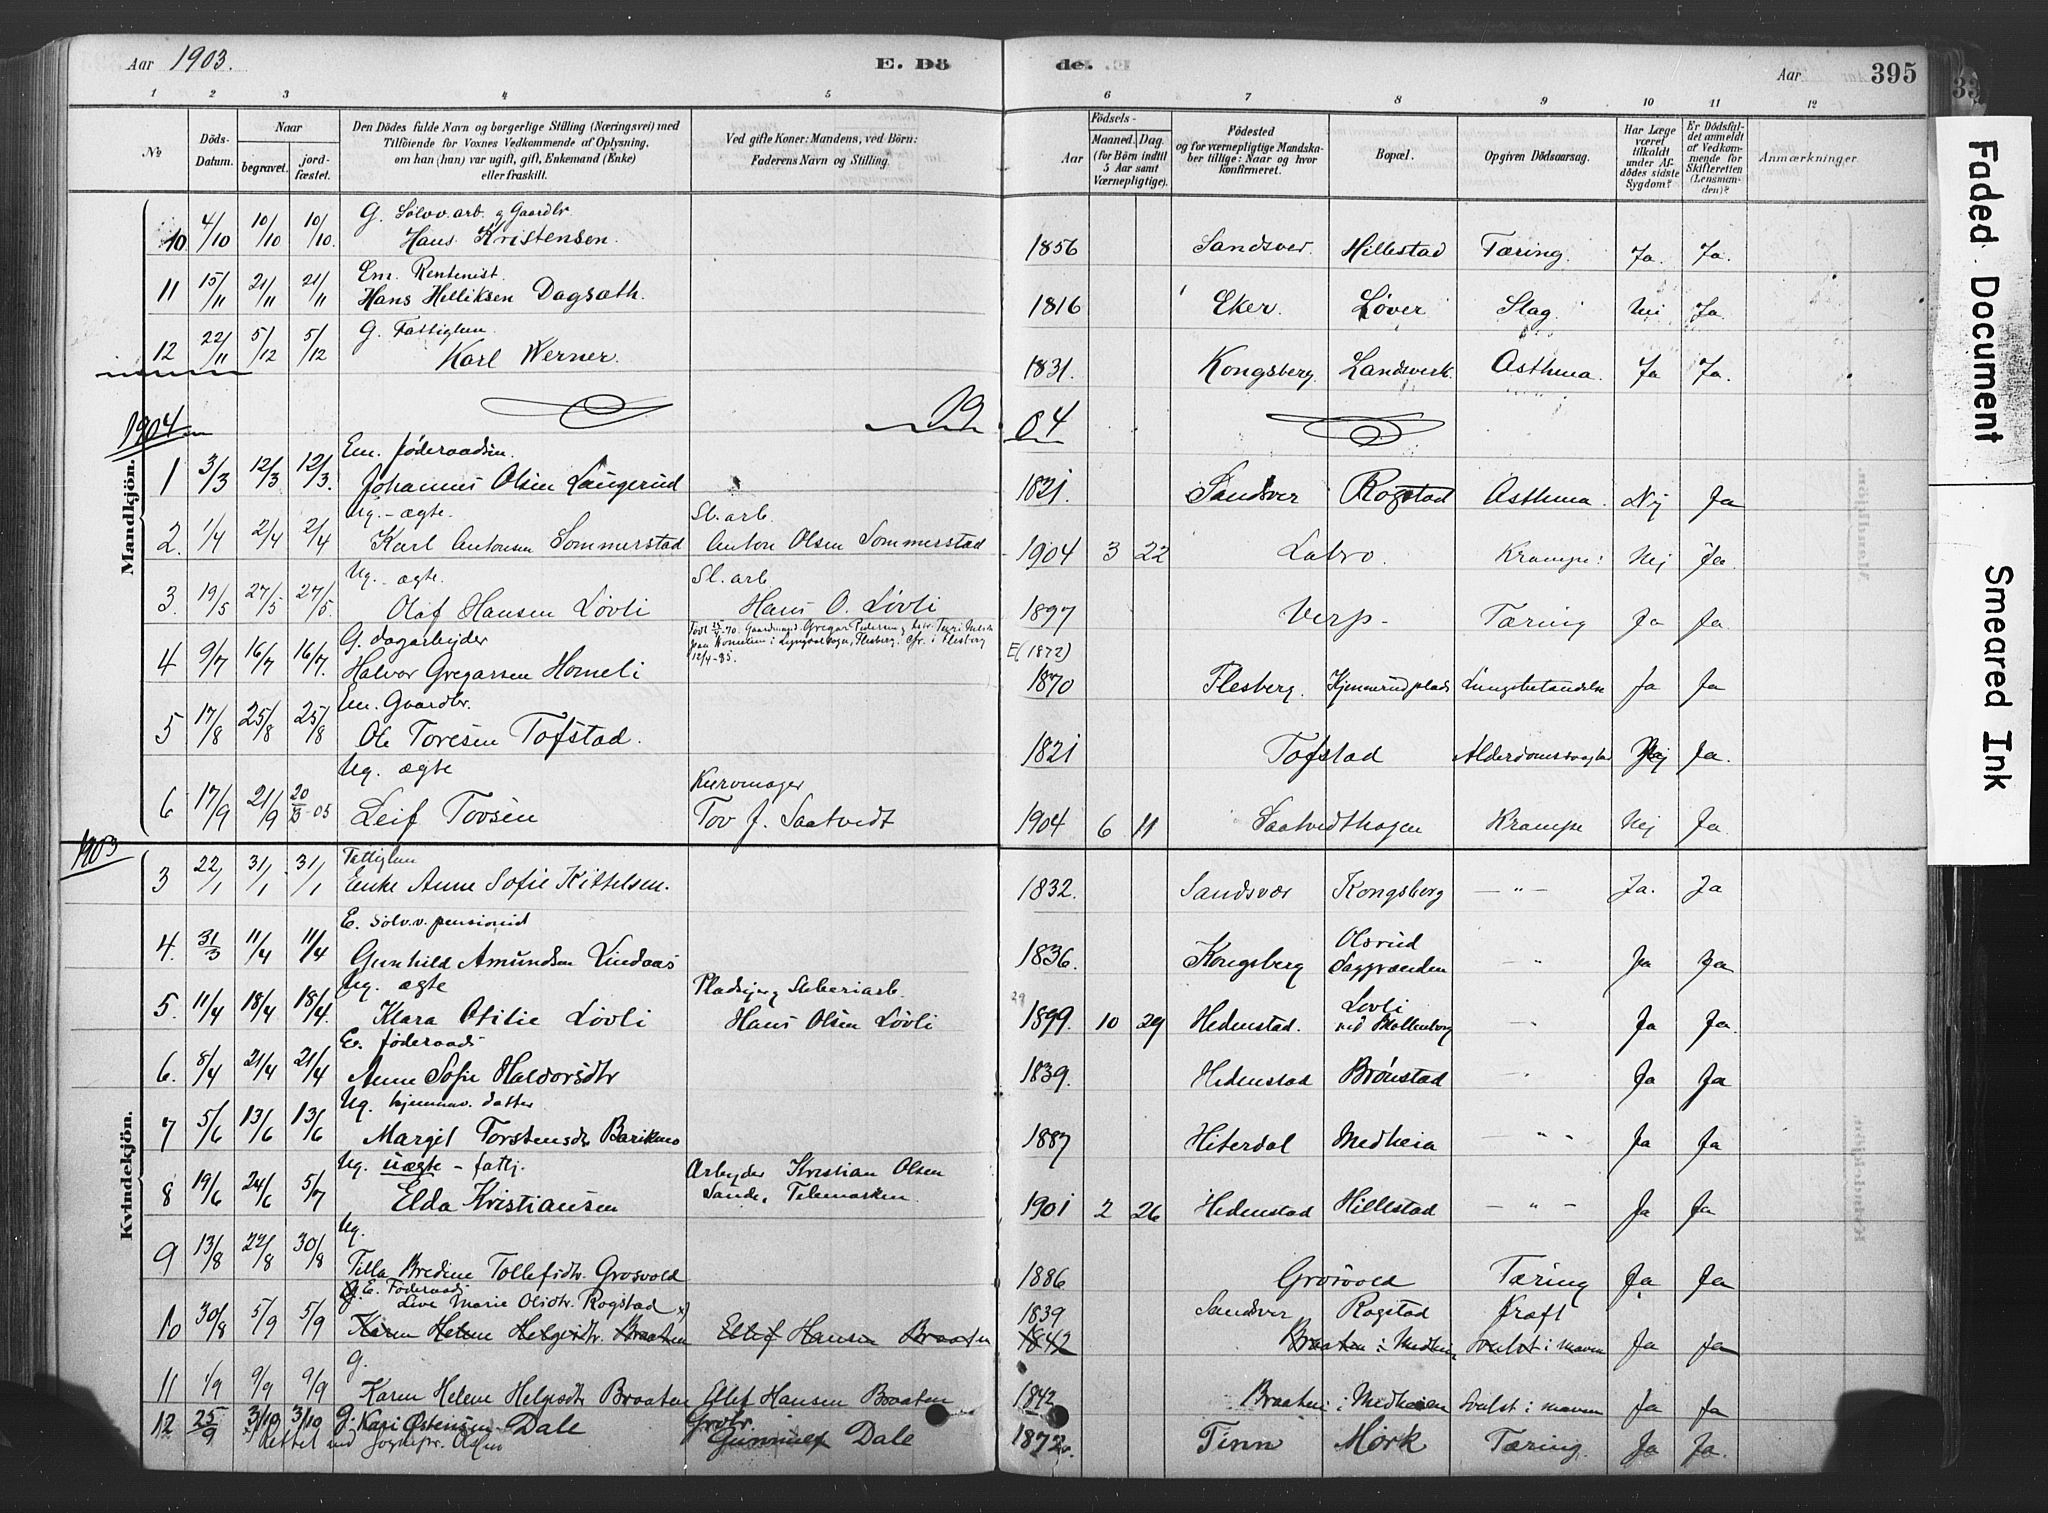 Aar 1903. E. Dö
de. Aar 395
1 2 3 4 5 6 7 8 9 10 11 12
№ Döds-Datum. Naar begravet. jord-fæstet. Den Dödes fulde Navn og borgerlige Stilling (Næringsvei) med Tilföiende for Voxnes Vedkommende af Oplysning, om han (hun) var ugift, gift, Enkemand (Enke) eller fraskilt. Ved gifte Koner: Mandens, ved Börn: Faderens Navn og Stilling. Födsels- Aar Maaned. Dag. (for Börn indtil 5 Aar samt Værnepligtige). Födested og for værnepligtige Mandskaber tillige: Naar og hvor konfirmeret. Bopæl. Opgiven Dödsaarsag. Har Læge været tilkaldt under Afdödes sidste Sygdom? Er Dödsfaldet anmeldt af Vedkommende for Skifteretten (Lensmanden)? Anmærkninger.
Mandkjön.
G. Sölvv. arb. og Gaardbr.
10. 4/10 10/10 10/10. Hans Kristensen. 1856 Sandsver. Hillestad Tæring. Ja. Ja.
Em. Rentenist.
11 15/11 21/11 21/11 Hans Helliksen Dagsath. 1816 Eker. Løver Slag. Nei Ja.
G. Fattiglem.
12 22/11 5/12 5/12 Karl Werner. 1831. Kongsberg. Landsverk. Asthma. Ja Ja.
1904 19 04
Em. föderaadsm.
1 3/3 12/3 12/3. Johannes Olsen Langerud 1821. Sandsver Rogstad Asthma. Nej Ja
Ug. - ægte. Sl. arb.
2. 1/4 2/4 2/4 Karl Antonsen Sommerstad Anton Olsen Sommerstad 1904 3 22 Labro. Krampe. Nej Ja.
Ug. ægte. Sl. arb.
3. 19/5 27/5 27/5. Olaf Hansen Løvli Hans O. Løvli 1897 Verp. Tæring Ja Ja.
G. dagarbejder Født 25/5-70. Gaardmand Gregar Pedersen
Flesberg. cfr. i Flesberg
12/4-85. E(1872)
4 9/7 16/7 16/7. Halvor Gregarsen Homeli 1870 Flesberg. Kjennerudplads Lungebetændelse Ja Ja
Em. Gaardbr.
5 17/8 25/8 25/8 Ole Toresen Tofstad. 1821 Tofstad Alderdomssvaghed Nej Ja.
Ug. ægte Kurvmager
6 17/9 21/9 20/3-05 Leif Tovsen Tov J. Saatvedt 1904 6 11 Saatvedthagen Krampe Nej Ja.
1903
Kvindekjön.
Fattiglem
3 22/1 31/1 31/1 Enke Anne Sofie Kittelsen. 1832. Sandsvær Kongsberg - " - Ja. Ja
E. Sølv.v. pensionist
4. 31/3 11/4 11/4 Gunhild Amundsen Lindaas 1836. Kongsberg Olsrud Saggrænden - " Ja Ja
Ug. ægte Pladsejer og Sliberiarb.
5. 11/4 18/4 18/4. Klara Otilie Løvli Hans Olsen Løvli 29 1899. 10 29 Hedenstad. Lovli ved Mollenborg - " Ja Ja.
E. føderaads
6. 8/4 21/4 21/4 Anne Sofie Haldorsdtr 1839. Hedenstad Brønstad " Ja Ja
Ug. hjemmev. datter
7 5/6 13/6 13/6 Margit Torstensdtr Barikmo 1887 Hiterdal Medheia - " " Ja Ja
Ug. uægte - fattj. Arbejder Kristian Olsen
8 19/6 24/6 5/7 Elda Kristiansen Sande, Telemarken. 1901 2 26 Hedenstad Hillestad - " - Ja Ja
Ug.
9 13/8 22/8 30/8 Tilla Bredine Tollefsdtr. Grosvold 1886 Grosvold Tæring Ja Ja
G. E. Føderaad
Live Marie Olsdtr. Rogstad x) 1839 Sandsver Rogstad Kræft
10 30/8 5/9 5/9 Karen Helene Helgesdtr. Braaten Ellef Hansen Braaten 1842 Braaten i Medheia Svulst i maven Ja Ja
G.
11 1/9 9/9 9/9 Karen Helene Helgesdtr Braaten Ellef Hansen Braaten 1842 Braaten i Medheien Svulst i maven Ja Ja
12 25/9 3/10 3/10 G. Kari Østensen Dale Grbr. Gunnulf Dale 1872. Tinn Mørk Tæring. Ja Ja.
Rettet ved Sognepr. Olsen
Faded Document
Smeared Ink